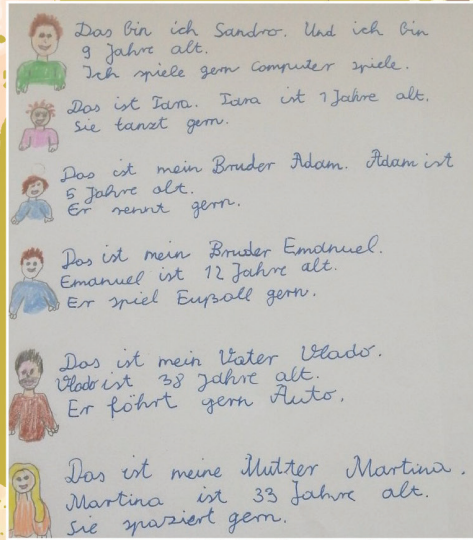 Das bin ich Sandro. Und ich bin
9 Jahre alt.
Ich spiele gern Computer spiele.
Das ist Tara. Tara ist 1 Jahre alt.
Sie tanzt gern.
Das ist mein Bruder Adam. Adam ist
5 Jahre alt.
Er rennt gern.
Das ist mein Bruder Emanuel.
Emanuel ist 12 Jahre alt.
Er spiel Fußall gern.
Das ist mein Vater Vlado.
Vlado ist 38 Jahre alt.
Er föhrt gern Auto.
Das ist meine Mutter Martina.
Martina ist 33 Jahre alt.
Sie spaziert gern.